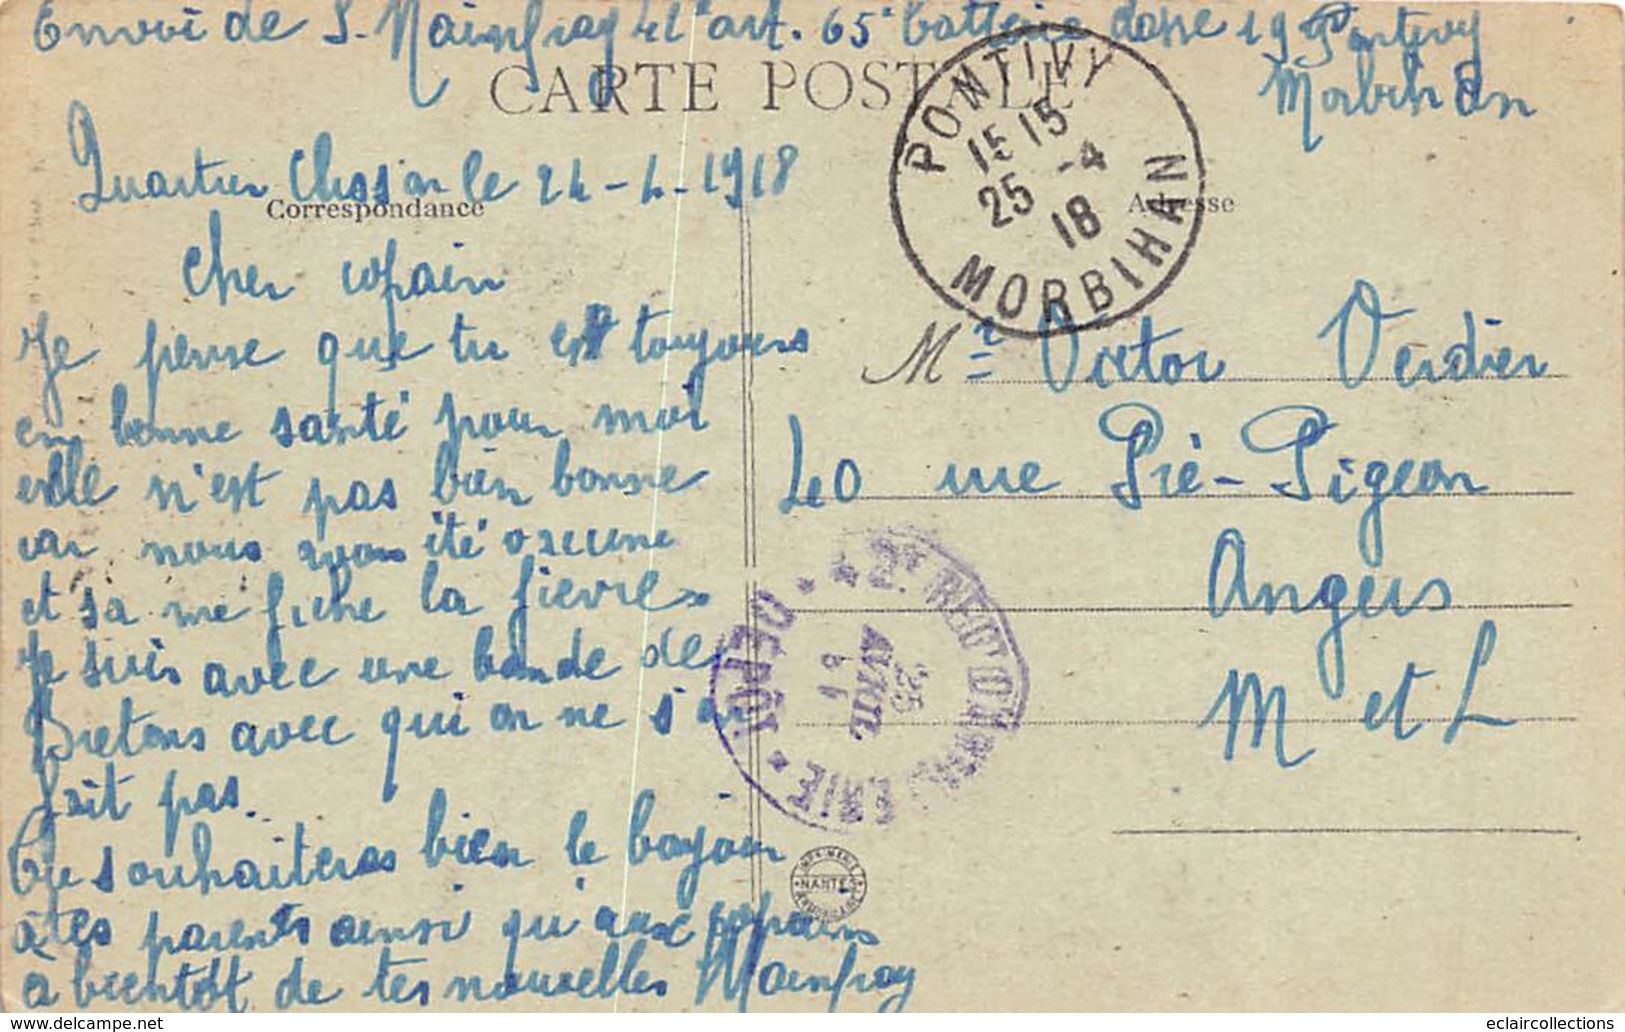 Envoi de S. Mainfray 41e art. 65e batterie classe 19 Pontivy
Morbihan
CARTE POSTALE
PONTIVY
15 15
25 -4
18
MORBIHAN
Quartier Clisson le 24-4-1918
Correspondance
Adresse
Cher copain
Je pense que tu est toujours
en bonne santé pour moi
elle n'est pas bien bonne
car nous avons été
et sa me fiche la fièvre
Je suis avec une bande de
Bretons avec qui on ne s'en
fait pas.
Tu souhaiteras bien le bonjour
à tes parents ainsi qu'aux copains
à bientôt de tes nouvelles Mainfray
Mr Victor Verdier
40 rue Pré-Pigeon
Angers
M et L
2e REGt D'ARTILLERIE
DEPOT
25
AVRIL
19
IMPRIMERIE
NANTES
ARMORICAINE
eclaircollections